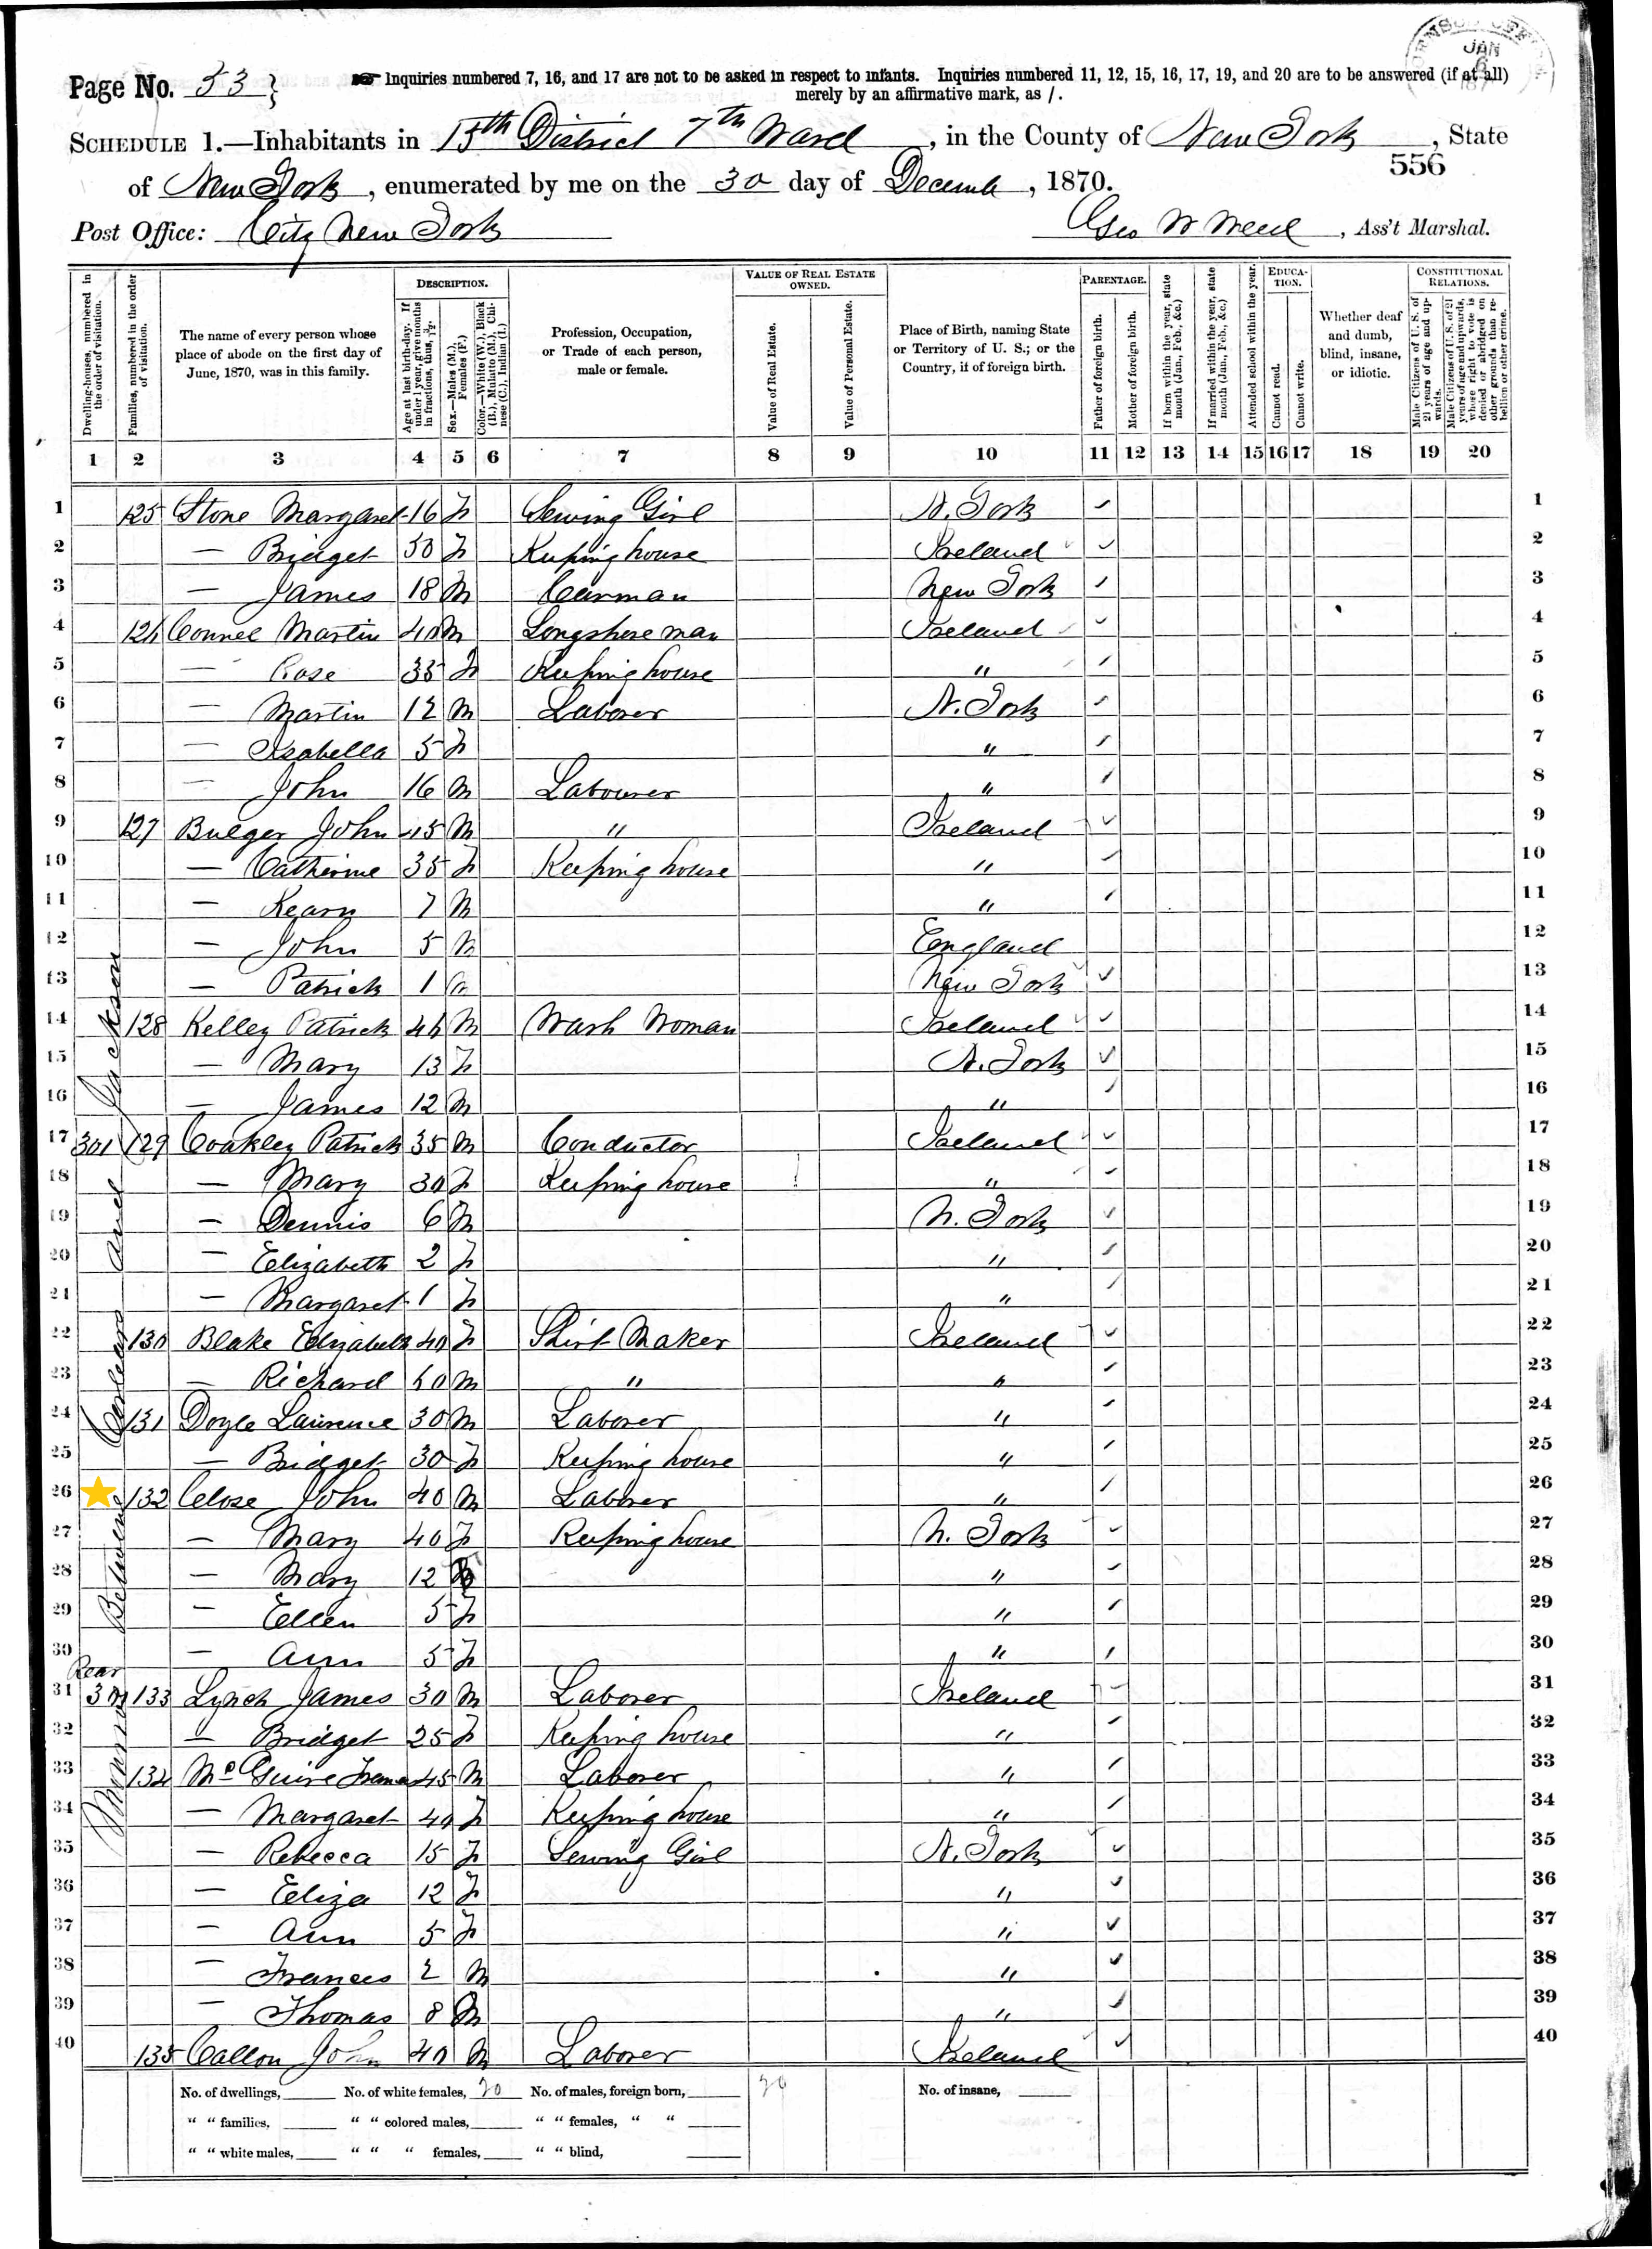 Page No. 53 } Inquiries numbered 7, 16, and 17 are not to be asked in respect to infants. Inquiries numbered 11, 12, 15, 16, 17, 19, and 20 are to be answered (if at all)
merely by an affirmative mark, as /.
JAN
SCHEDULE 1.—Inhabitants in 15th District 7th Ward, in the County of New York, State
556
of New York, enumerated by me on the 30 day of Decemb, 1870.
Post Office: City New York Geo W , Ass't Marshal.
Dwelling-houses, numbered in the order of visitation.
Families, numbered in the order of visitation.
The name of every person whose place of abode on the first day of June, 1870, was in this family.
DESCRIPTION.
Age at last birth-day. If under 1 year, give months in fractions, thus, 3/12.
Sex.—Males (M.), Females (F.)
Color.—White (W.), Black (B.), Mulatto (M.), Chinese (C.), Indian (I.)
Profession, Occupation, or Trade of each person, male or female.
VALUE OF REAL ESTATE OWNED.
Value of Real Estate.
Value of Personal Estate.
Place of Birth, naming State or Territory of U. S.; or the Country, if of foreign birth.
PARENTAGE.
Father of foreign birth.
Mother of foreign birth.
If born within the year, state month (Jan., Feb., &c.)
If married within the year, state month (Jan., Feb., &c.)
Attended school within the year.
EDUCATION.
Cannot read.
Cannot write.
Whether deaf and dumb, blind, insane, or idiotic.
CONSTITUTIONAL RELATIONS.
Male Citizens of U. S. of 21 years of age and upwards.
Male Citizens of U. S. of 21 years of age and upwards, whose right to vote is denied or abridged on other grounds than rebellion or other crime.
1 2 3 4 5 6 7 8 9 10 11 12 13 14 15 16 17 18 19 20
1 125 Stone Margaret 16 F Sewing Girl N. York 1
2 — Bridget 50 F Keeping house Ireland 2
3 — James 18 M Carman New York 3
4 126 Connel Martin 40 M Longshoreman Ireland 4
5 — Rose 35 F Keeping house " 5
6 — Martin 12 M Laborer N. York 6
7 — Isabella 5 F " 7
8 — John 16 M Labourer " 8
9 127 Bulger John 45 M " Ireland 9
10 — Catherine 35 F Keeping house " 10
11 — Kearn 7 M " 11
12 — John 5 M England 12
13 — Patrick 1 New York 13
14 128 Kelley Patrick 46 M Wash Woman Ireland 14
15 — Mary 13 F N. York 15
16 — James 12 M " 16
17 301 129 Coakley Patrick 35 M Conductor Ireland 17
18 — Mary 30 F Keeping house " 18
19 — Dennis 6 M N. York 19
20 — Elizabeth 2 F " 20
21 — Margaret 1 F " 21
22 130 Blake Elizabeth 40 F Shirt Maker Ireland 22
23 — Richard 60 M " " 23
24 131 Doyle Laurence 30 M Laborer " 24
25 — Bridget 30 F Keeping house " 25
26 132 Close John 40 M Laborer " 26
27 — Mary 40 F Keeping house N. York 27
28 — Mary 12 " 28
29 — Ellen 5 F " 29
30 — Ann 5 F " 30
Rear
31 301 133 Lynch James 30 M Laborer Ireland 31
32 — Bridget 25 F Keeping house " 32
33 134 McGuire 45 M Laborer " 33
34 — Margaret 40 F Keeping house " 34
35 — Rebecca 15 F Sewing Girl N. York 35
36 — Eliza 12 F " 36
37 — Ann 5 F " 37
38 — Frances 2 M " 38
39 — Thomas 8 M " 39
40 135 Callon John 40 M Laborer Ireland 40
Monroe Between Corlears and Jackson
No. of dwellings, No. of white females, 20 No. of males, foreign born, 20 No. of insane,
" " families, " " colored males, " " females, " "
" " white males, " " " females, " " blind,